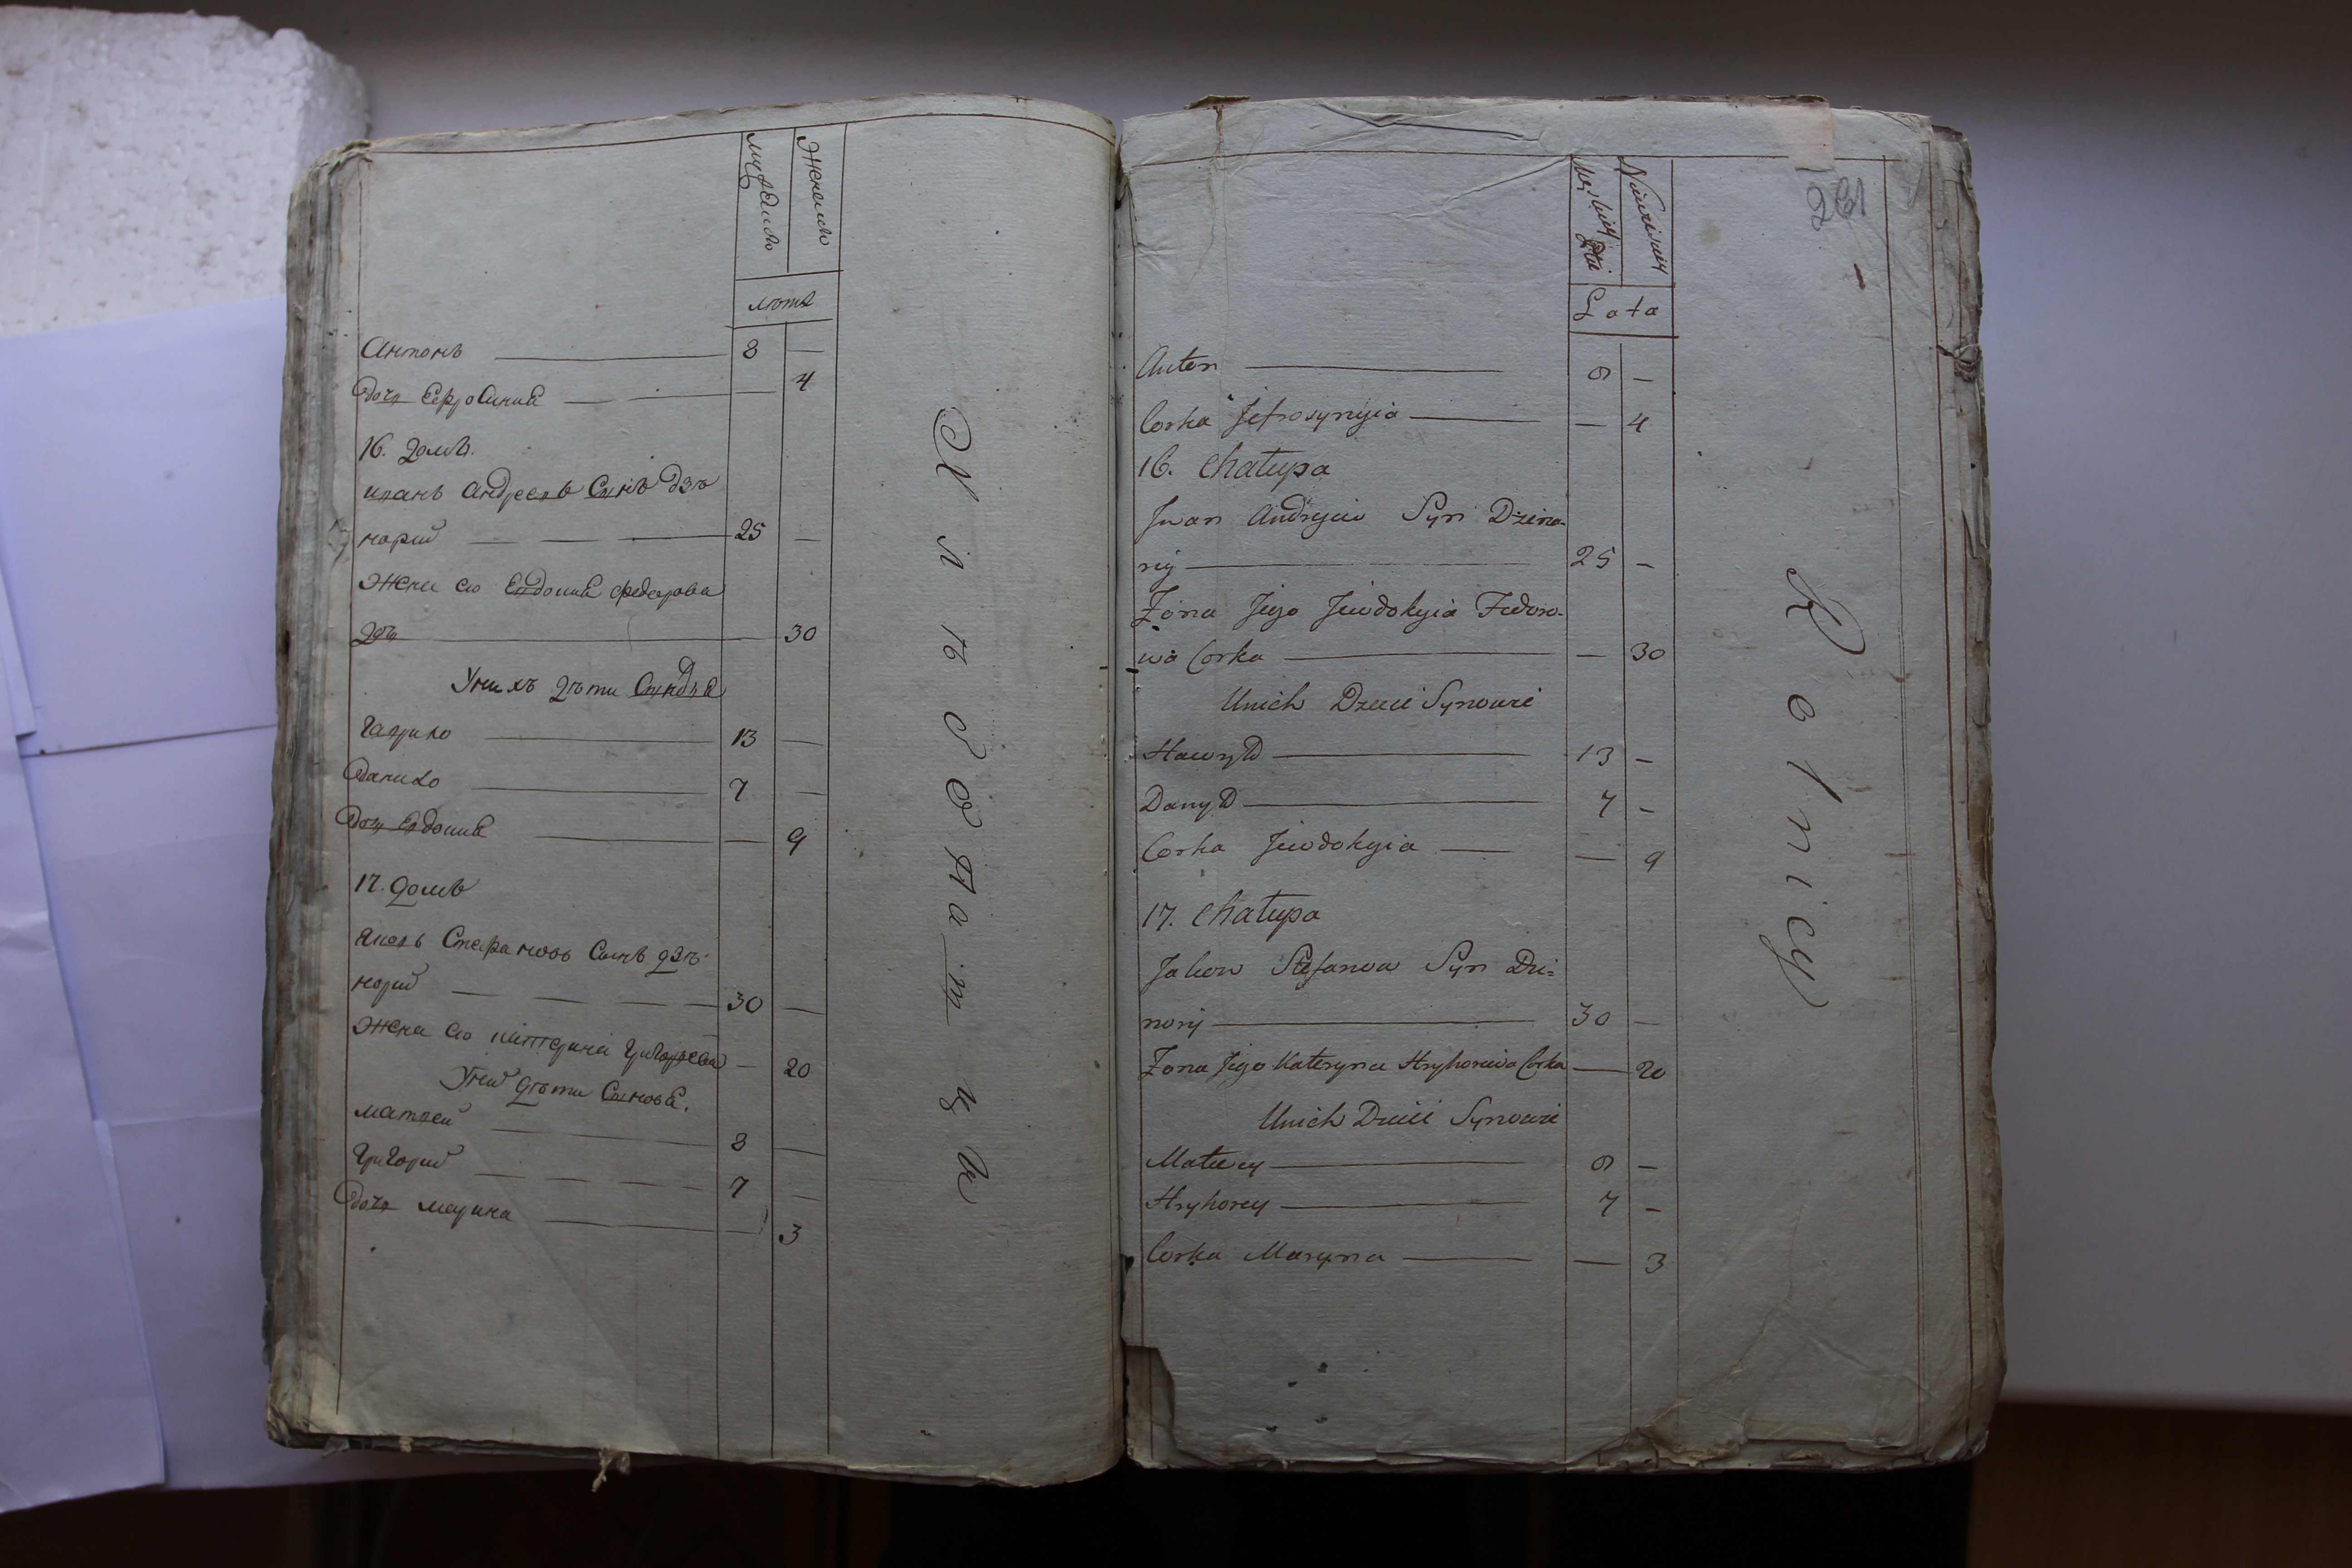 Женско
лѣта
Антонъ 8 —
дочь Ефросиния — 4
16. домъ.
иванъ андреевъ Сынъ дзѣ
норий 25 —
Жена его Евдокия федорова
дочь — 30
У них дѣти Сыновя
Гаврило 13 —
Данило 7 —
дочь Евдокия — 9
17. домъ
яковъ Стефановъ Сынъ дзѣ-
норий 30 —
Жена его катерина григорьева — 20
У них дѣти Сыновя.
матвей 8 —
григорий 7 —
дочь марина — 3
Хлѣбопашцы
261
Lata
Anton 8 —
Corka Jefrosynyia — 4
16. Chałupa
Jwan Andryiew Syn Dzino-
ryj 25 —
Żona Jego Jewdokyia Fedoro-
wa Corka — 30
Unich Dzieci Synowie
Hawryło 13 —
Danyło 7 —
Corka Jewdokyia — 9
17. Chałupa
Jakow Stefanow Syn Dzi=
noryj 30 —
Żona Jego Kateryna Hryhoriewa Corka — 20
Unich Dzieci Synowie
Matwey 8 —
Hryhorey 7 —
Corka Maryna — 3
Rolnicy